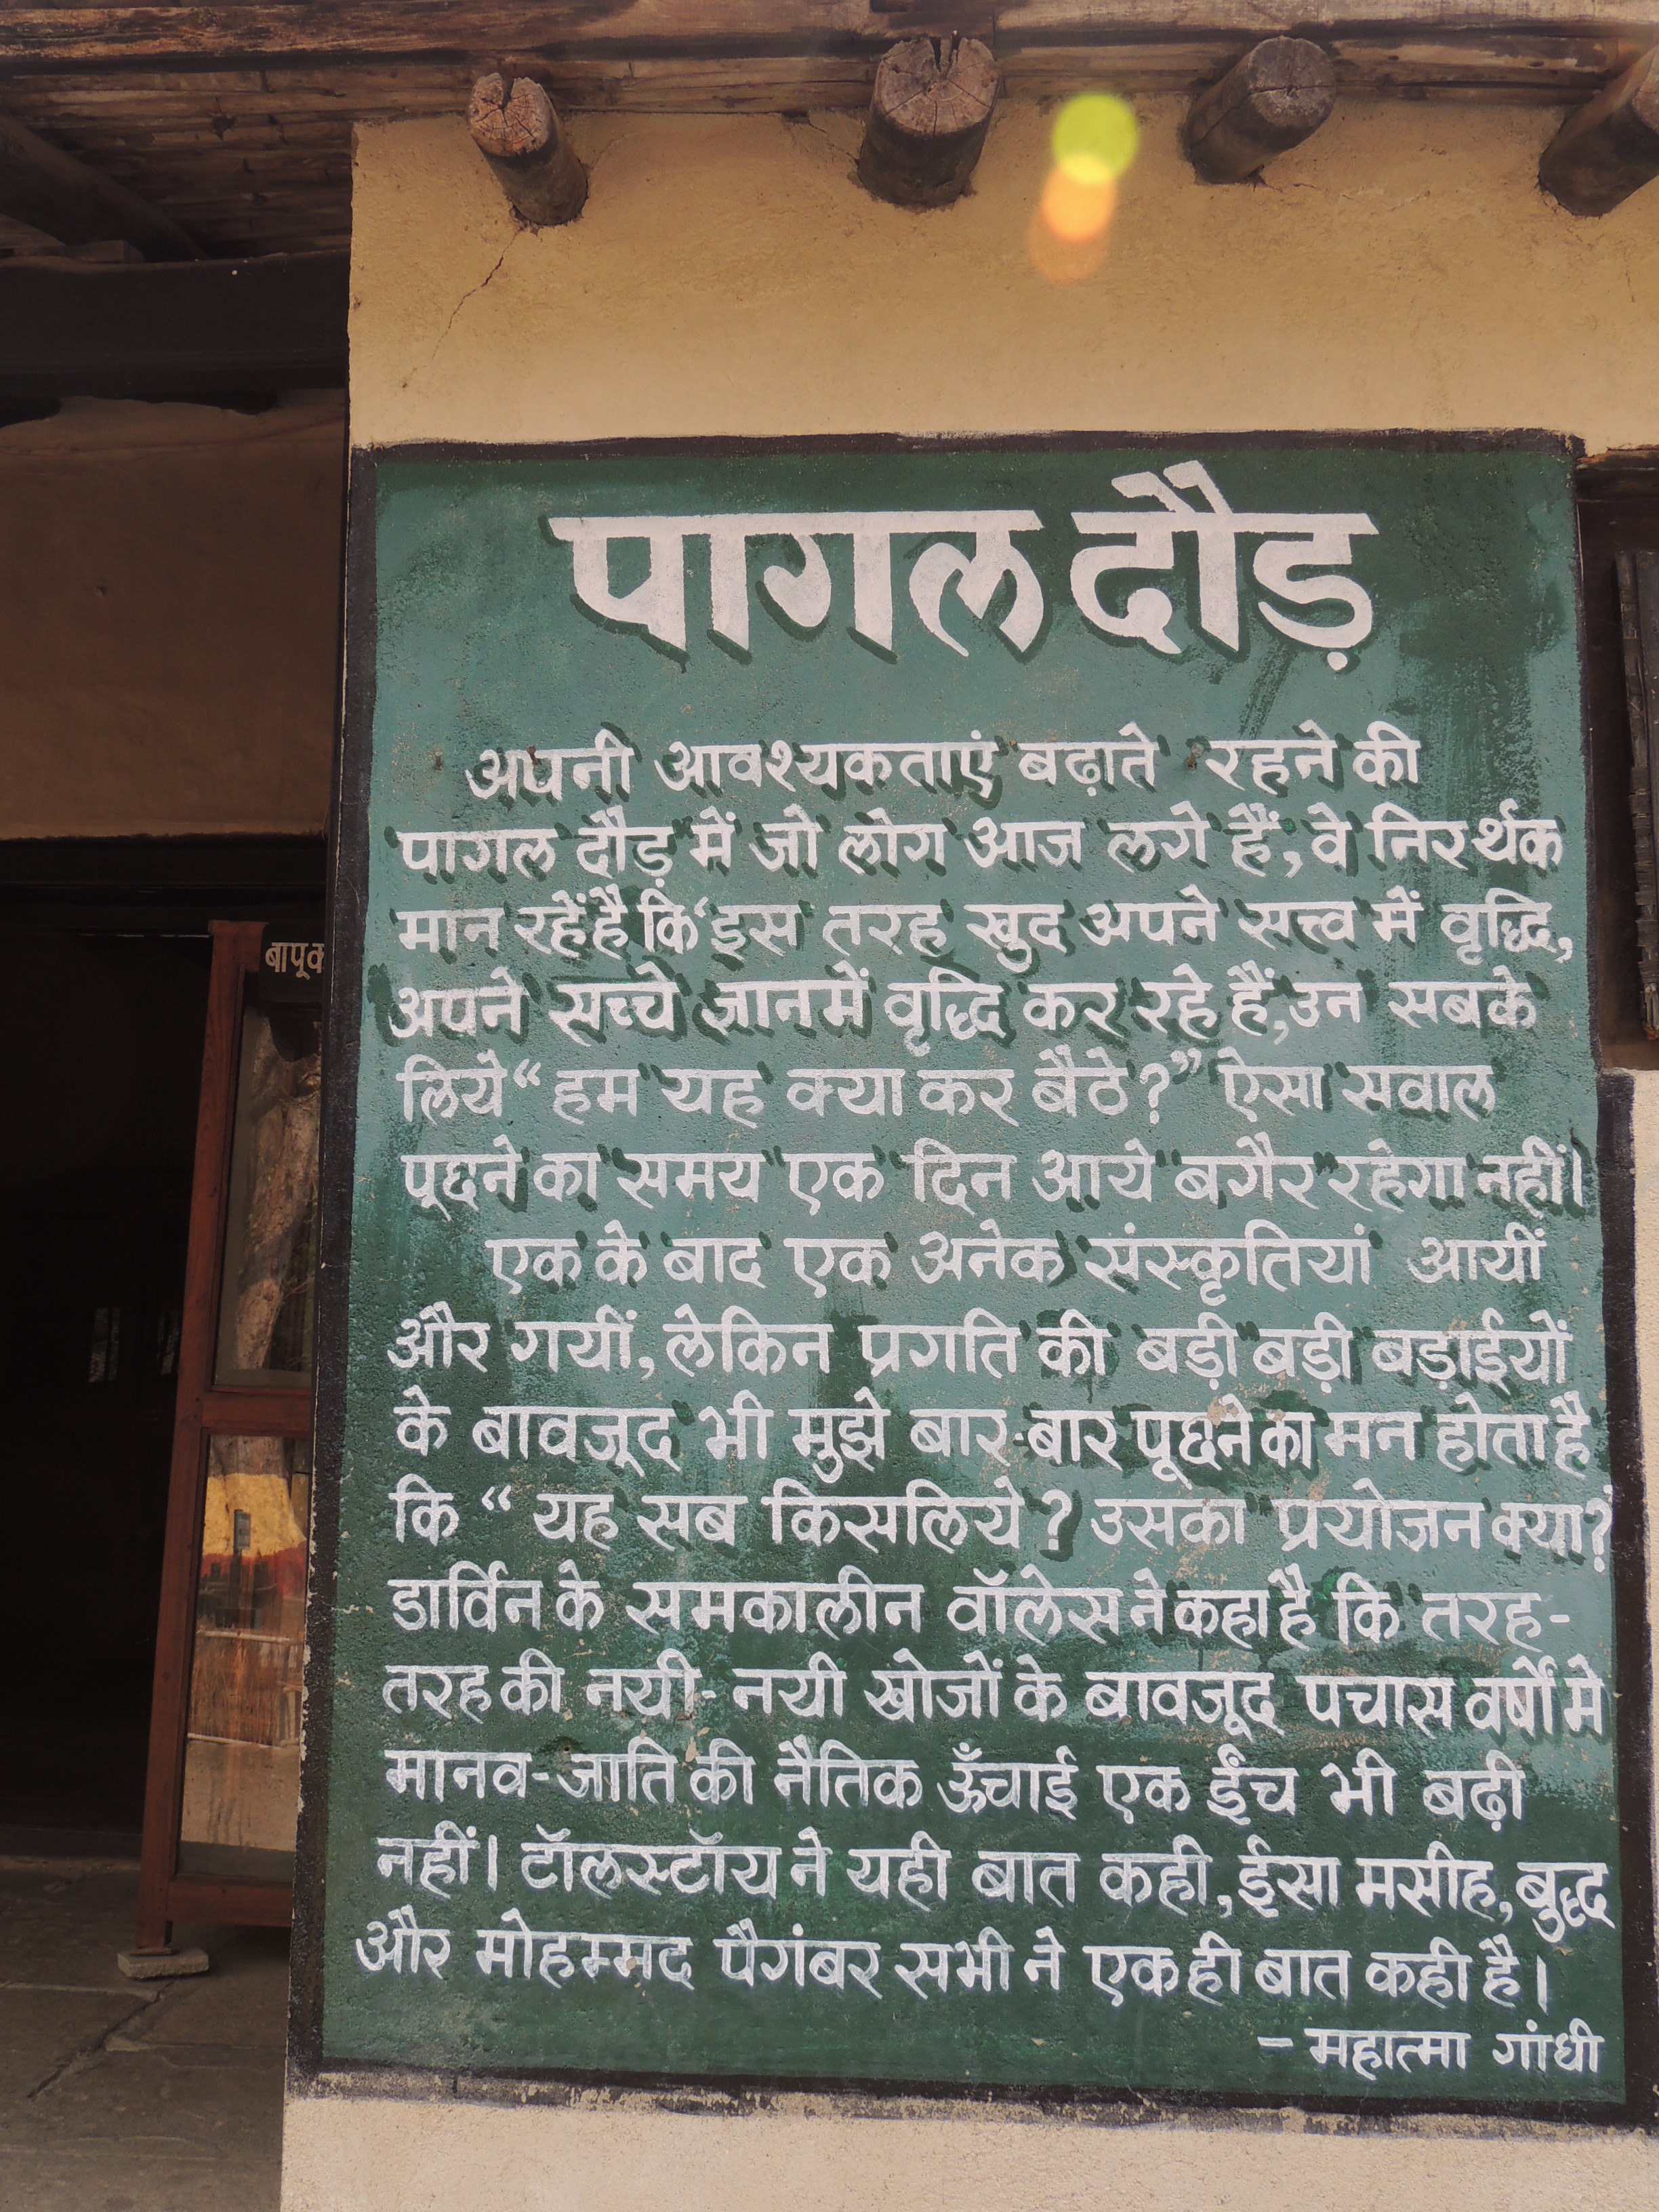 पागल दौड़
अपनी आवश्यकताएं बढ़ाते रहने की
पागल दौड़ में जो लोग आज लगे हैं, वे निरर्थक
मान रहें है कि ‘इस तरह खुद अपने सत्त्व में वृद्धि,
अपने सच्चे ज्ञानमें वृद्धि कर रहे हैं, उन सबके
लिये “ हम यह क्या कर बैठे?” ऐसा सवाल
पूछने का समय एक दिन आये बगैर रहेगा नहीं।
एक के बाद एक अनेक संस्कृतियां आयीं
और गयीं, लेकिन प्रगति की बड़ी बड़ी बड़ाईयों
के बावजूद भी मुझे बार-बार पूछने का मन होता है
कि “ यह सब किसलिये ? उसका प्रयोजन क्या?
डार्विन के समकालीन वॉलेस ने कहा है कि तरह-
तरह की नयी- नयी खोजों के बावजूद पचास वर्षों मे
मानव-जाति की नैतिक ऊँचाई एक ईंच भी बढ़ी
नहीं। टॉलस्टॉय ने यही बात कही, ईसा मसीह, बुद्ध
और मोहम्मद पैगंबर सभी ने एक ही बात कही है।
- महात्मा गांधी